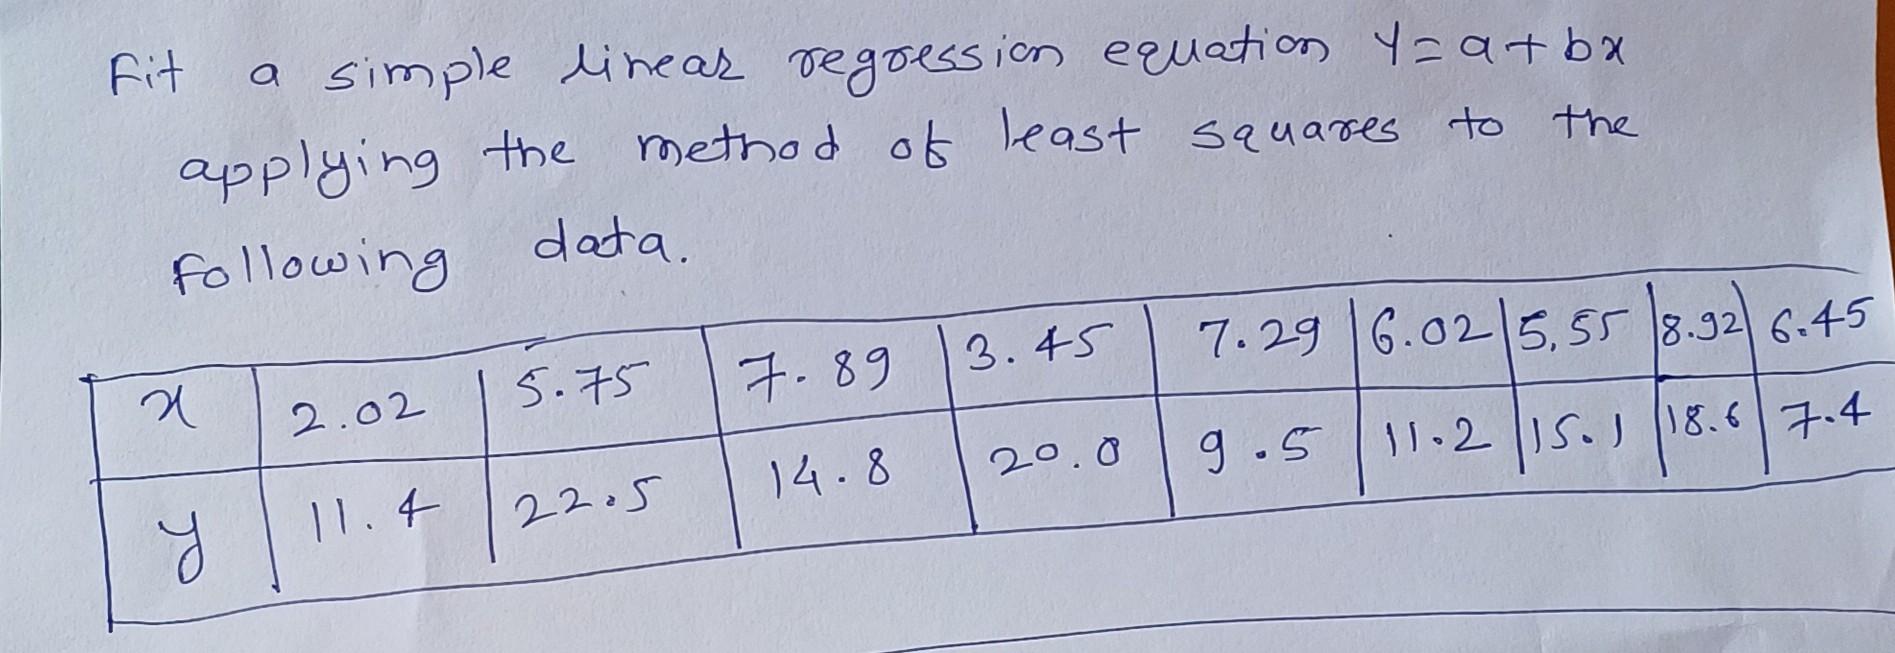 Fit a simple linear regression equation Y = a + bx
applying the method of least squares to the
following data.
x 2.02 5.75 7.89 3.45 7.29 6.02 5.55 8.92 6.45
y 11.4 22.5 14.8 20.0 9.5 11.2 15.1 18.6 7.4